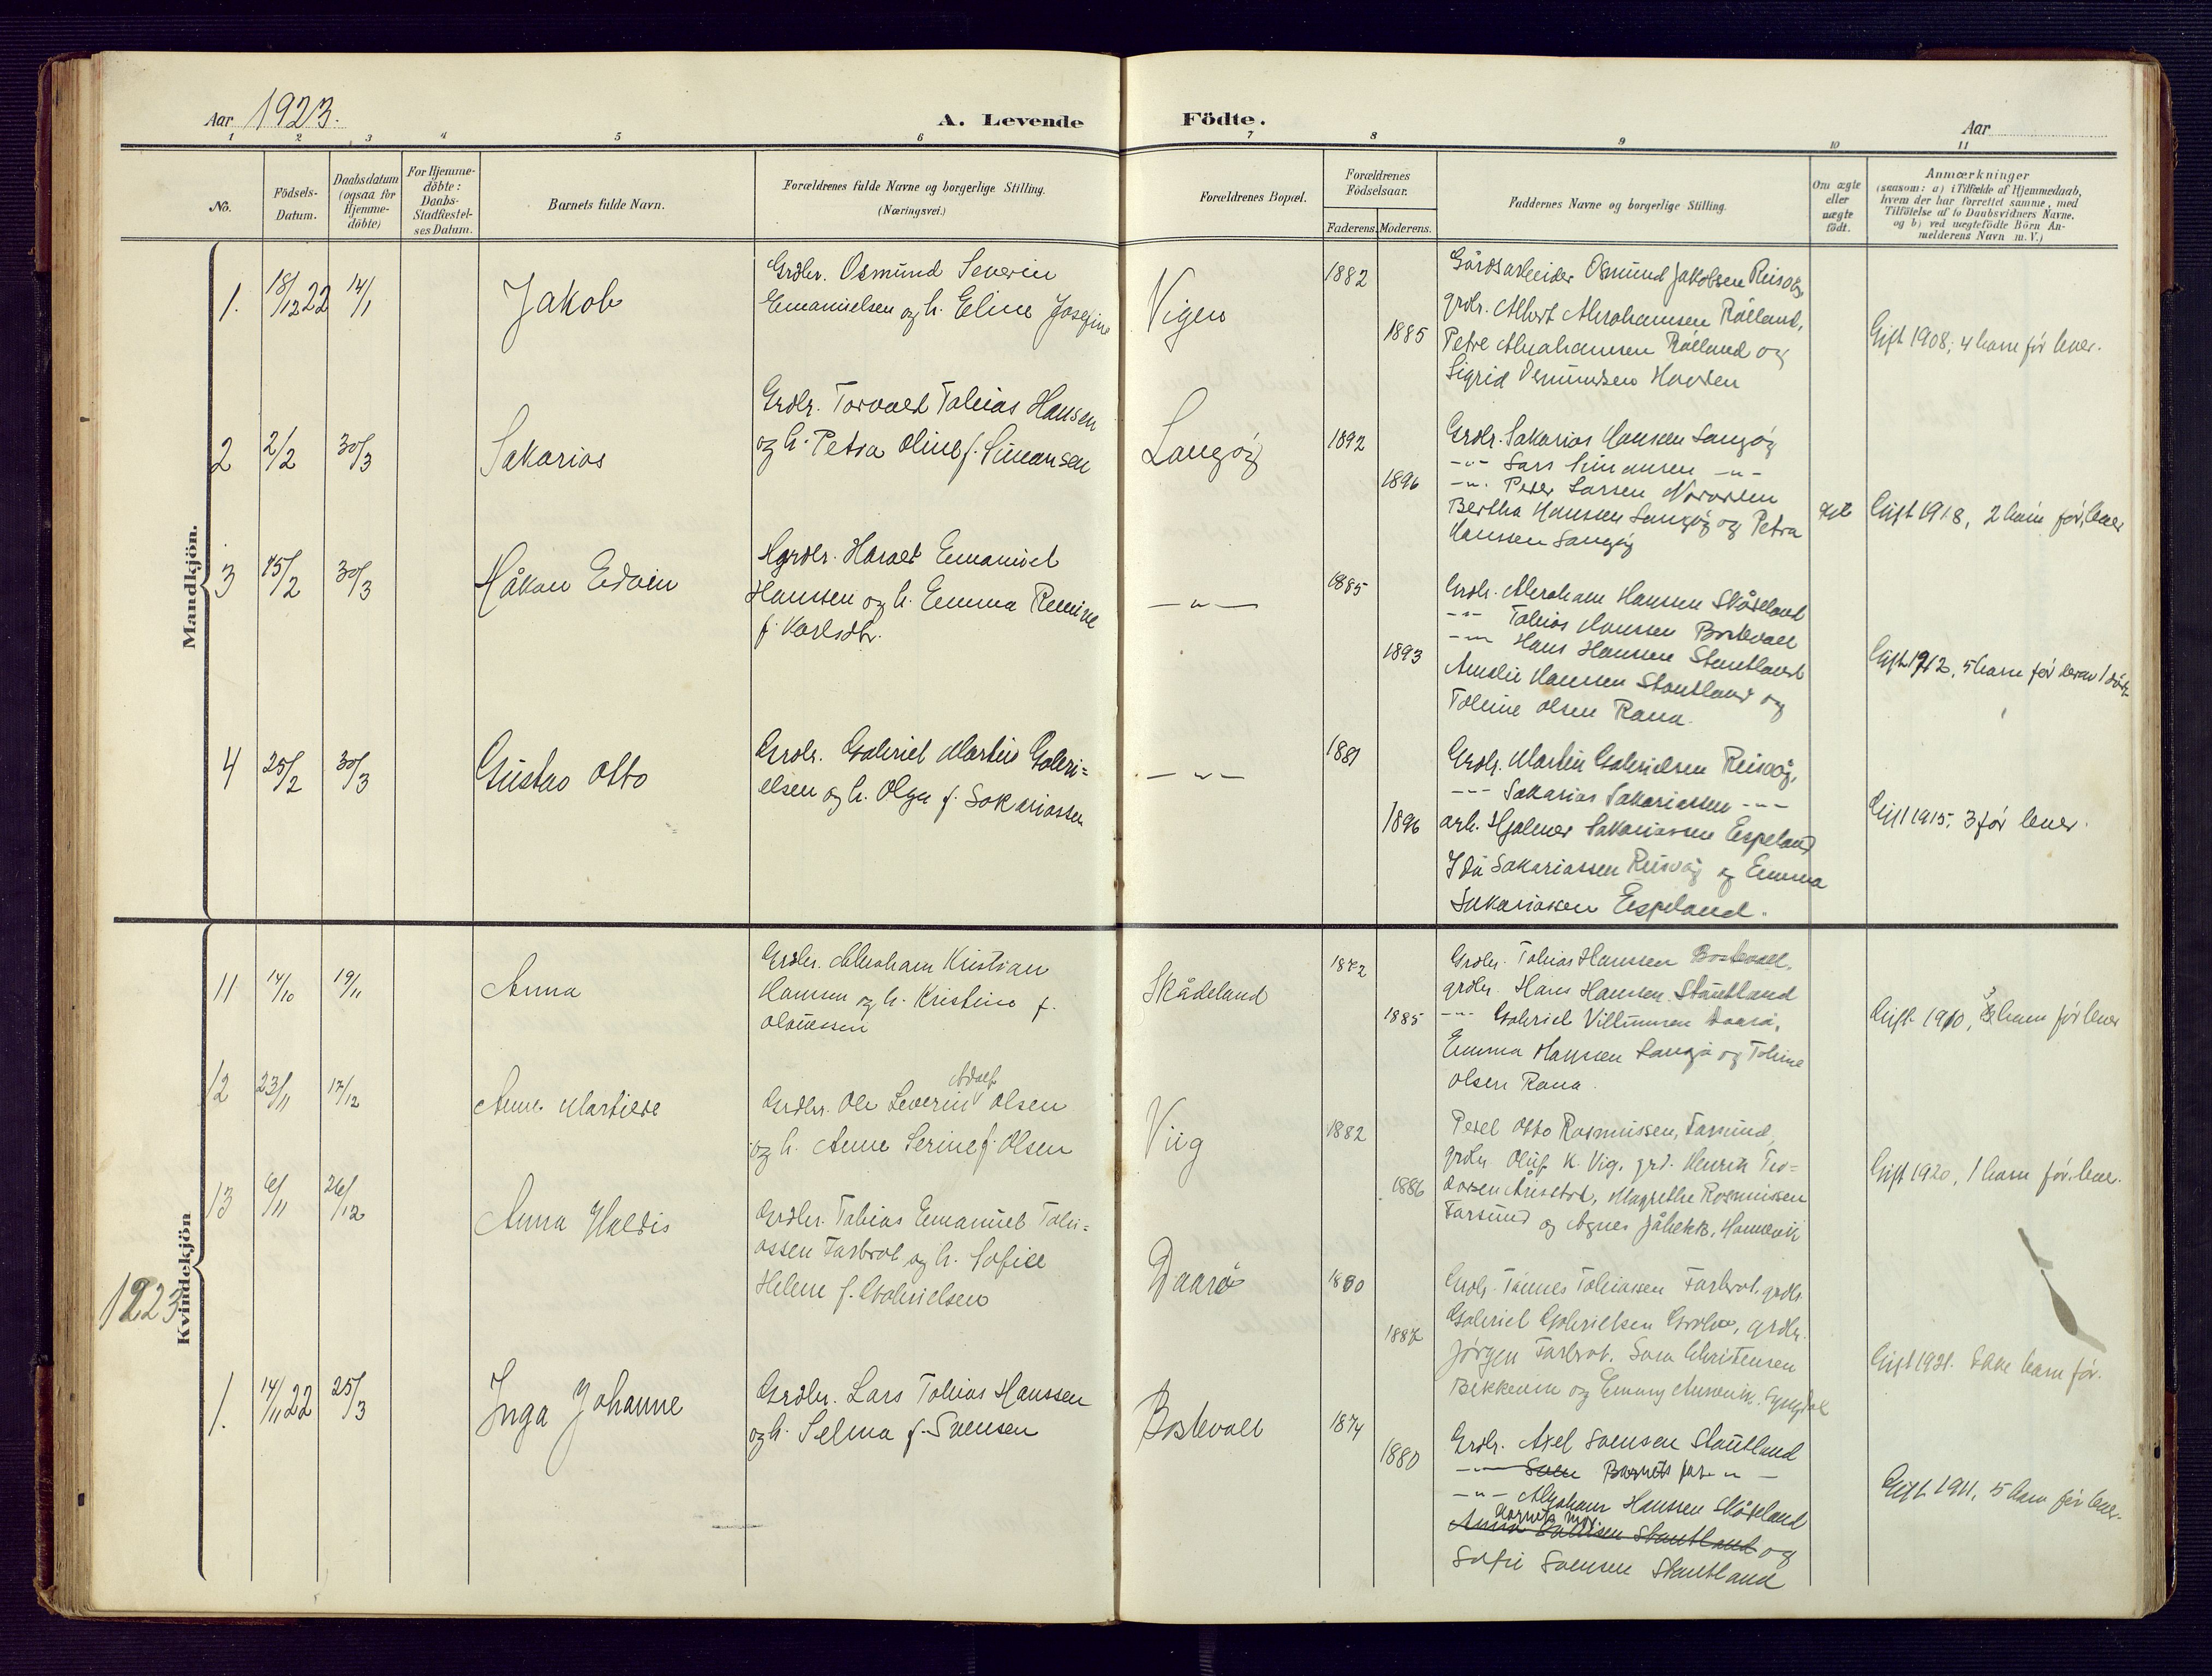 Aar 1923.
A. Levende Födte.
Aar
1 2 3 4 5 6 7 8 9 10 11
No.
Födsels-
Datum.
Daabsdatum
(ogsaa for
Hjemme-
döbte)
For Hjemme-
döbte:
Daabs-
Stadfæstel-
ses Datum.
Barnets fulde Navn.
Forældrenes fulde Navne og borgerlige Stilling.
(Næringsvei.)
Forældrenes Bopæl.
Forældrenes
Födselsaar.
Faderens. Moderens.
Faddernes Navne og borgerlige Stilling.
Om ægte
eller
uægte
födt.
Anmærkninger
(saasom: a) i Tilfælde af Hjemmedaab,
hvem der har forrettet samme, med
Tilföielse af to Daabsvidners Navne,
og b) ved uægtefödte Börn An-
melderens Navn m. V.)
Mandkjön.
1. 18/12 22 14/1 Jakob
Grdbr. Osmund Severin
Emanuelsen og h. Eline Josefine
Vigen
1882
1885
Gårdsarbeider Osmund Jakobsen Reisvåg,
grdbr. Albert Abrahamsen Rölland,
Petre Abrahamsen Rölland og
Sigrid Osmundsen
Gift 1908; 4 barn för lever.
2 2/2 30/3 Sakarias
Grdbr. Torvald Tobias Hansen
og h. Petra Oline f. Simonsen
Langöy
1892
1896
Grdbr. Sakarias Hansen Langöy
-"- Lars Simonsen -"-
-"- Peder Larsen
Bertha Hansen Langöy og Petra
Hanssen Langöy
Gift 1918, 2 barn för, lever
3 15/2 30/3 Håkon Edvin
Harald Emanuel
Hanssen og h. Emma Remine
f. Karlsdtr.
-"-
1885
1893
Grdbr. Abraham Hanssen Skådeland
-"- Tobias Hanssen Bostevold
-"- Hans Hanssen Stautland
Amalie Hanssen Stautland og
Tobine Olsen Rana.
Gift 1912, 5 barn för derav 1 död
4 25/2 30/3 Gustav Otto
Grdbr. Gabriel Martin Gabri=
elsen og h. Olga f. Sakariassen
-"-
1881
1896
Grdbr. Martin Gabrielsen Reisvåg,
-"- Sakarias Sakariassen -"-
arb. Hjalmer Sakariassen Espeland
Ida Sakariassen Reisvåg og Emma
Sakariassen Espeland.
Gift 1915; 3 för lever.
Kvindekjön
11 14/10 19/11 Anna
Grdbr. Abraham Kristian
Hansen og h. Kristine f.
Olaussen
Skådeland
1872
1885
Grdbr. Tobias Hanssen Bostevoll.
grdbr. Hans Hansen Stautland
-"- Gabriel Villumsen Daasö,
Emma Hanssen Langö og Tobine
Olsen Rana.
Gift 1910, 3 barn för lever
12 23/11 17/12 Anne Martine
Grdbr. Ole Severin Adolf Olsen
og h. Anne Serine f. Olsen
Viig
1882
1886
Otto Rasmussen, Farsund,
grdbr Oluf K. Vig, grd. Henrik Teo=
dorsen Margrethe Rasmussen
Farsund og Agnes
Gift 1920, 1 barn för. lever.
13 6/11 26/12 Anna Haldis
Grdbr. Tobias Emanuel Tobi=
assen Farbrot og h. Sofie
Helene f. Gabrielsen
Daasö
1880
1887
Grdbr. Tönnes Tobiassen Farbrot, grdbr.
Gabriel Gabrielsen grdbr.
Jörgen Farbrot, Sara Christensen
og Emmy
Gift 1921. Ikke barn för.
1923
1. 14/11 22 25/3 Inga Johanne
Grdbr. Lars Tobias Hanssen
og h. Selma f. Svensen
Bostevoll
1874
1880
Grdbr. Axel Svensen Stautland
-"- Barnets far -"-
-"- Abraham Hanssen Skådeland
barnets mor
Stautland og
Sofie Svensen Stautland
Gift 1911, 5 barn för lever.